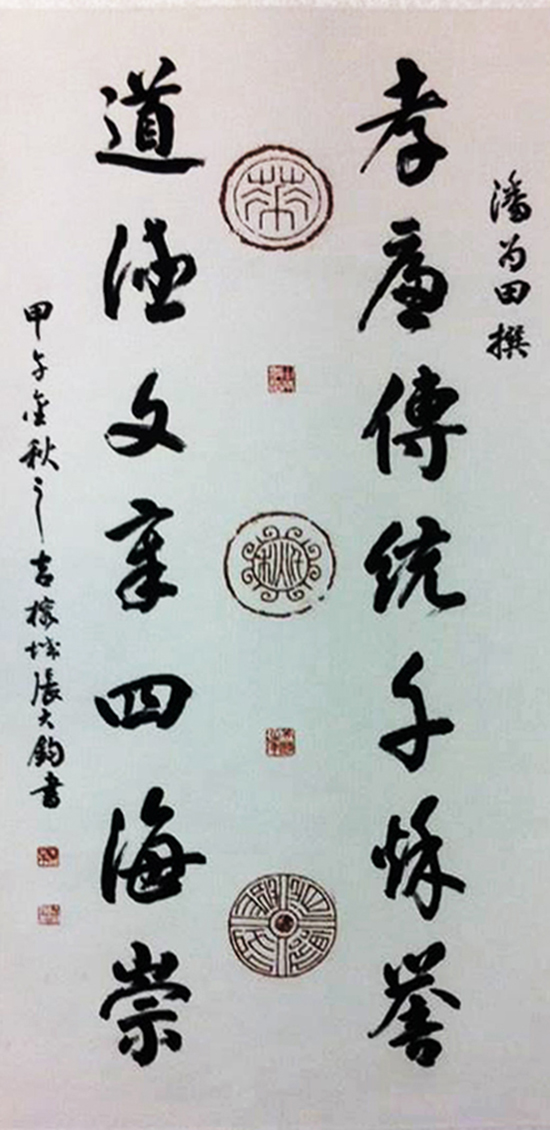 潘为田撰
孝廉傳統千秋譽
道德文章四海崇
甲午金秋之吉榕城張大鈞書